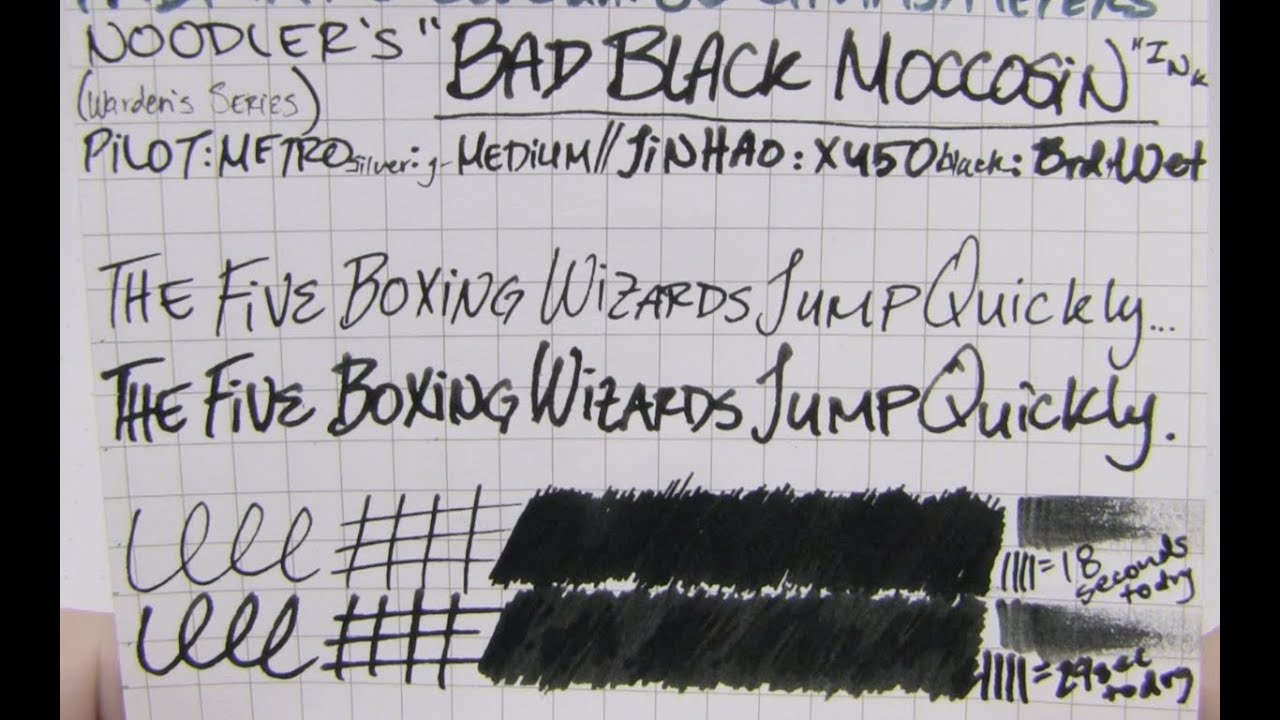 NOODLER'S "BAD BLACK MOCCOSIN" INK
(Warden's SERIES)
PILOT: METRO silver: MEDIUM // JINHAO: X450 black: Brd, Wet
THE FIVE BOXING WIZARDS JUMP QUICKLY...
THE FIVE BOXING WIZARDS JUMP QUICKLY.
= 18 seconds to dry
= 29 sec to dry